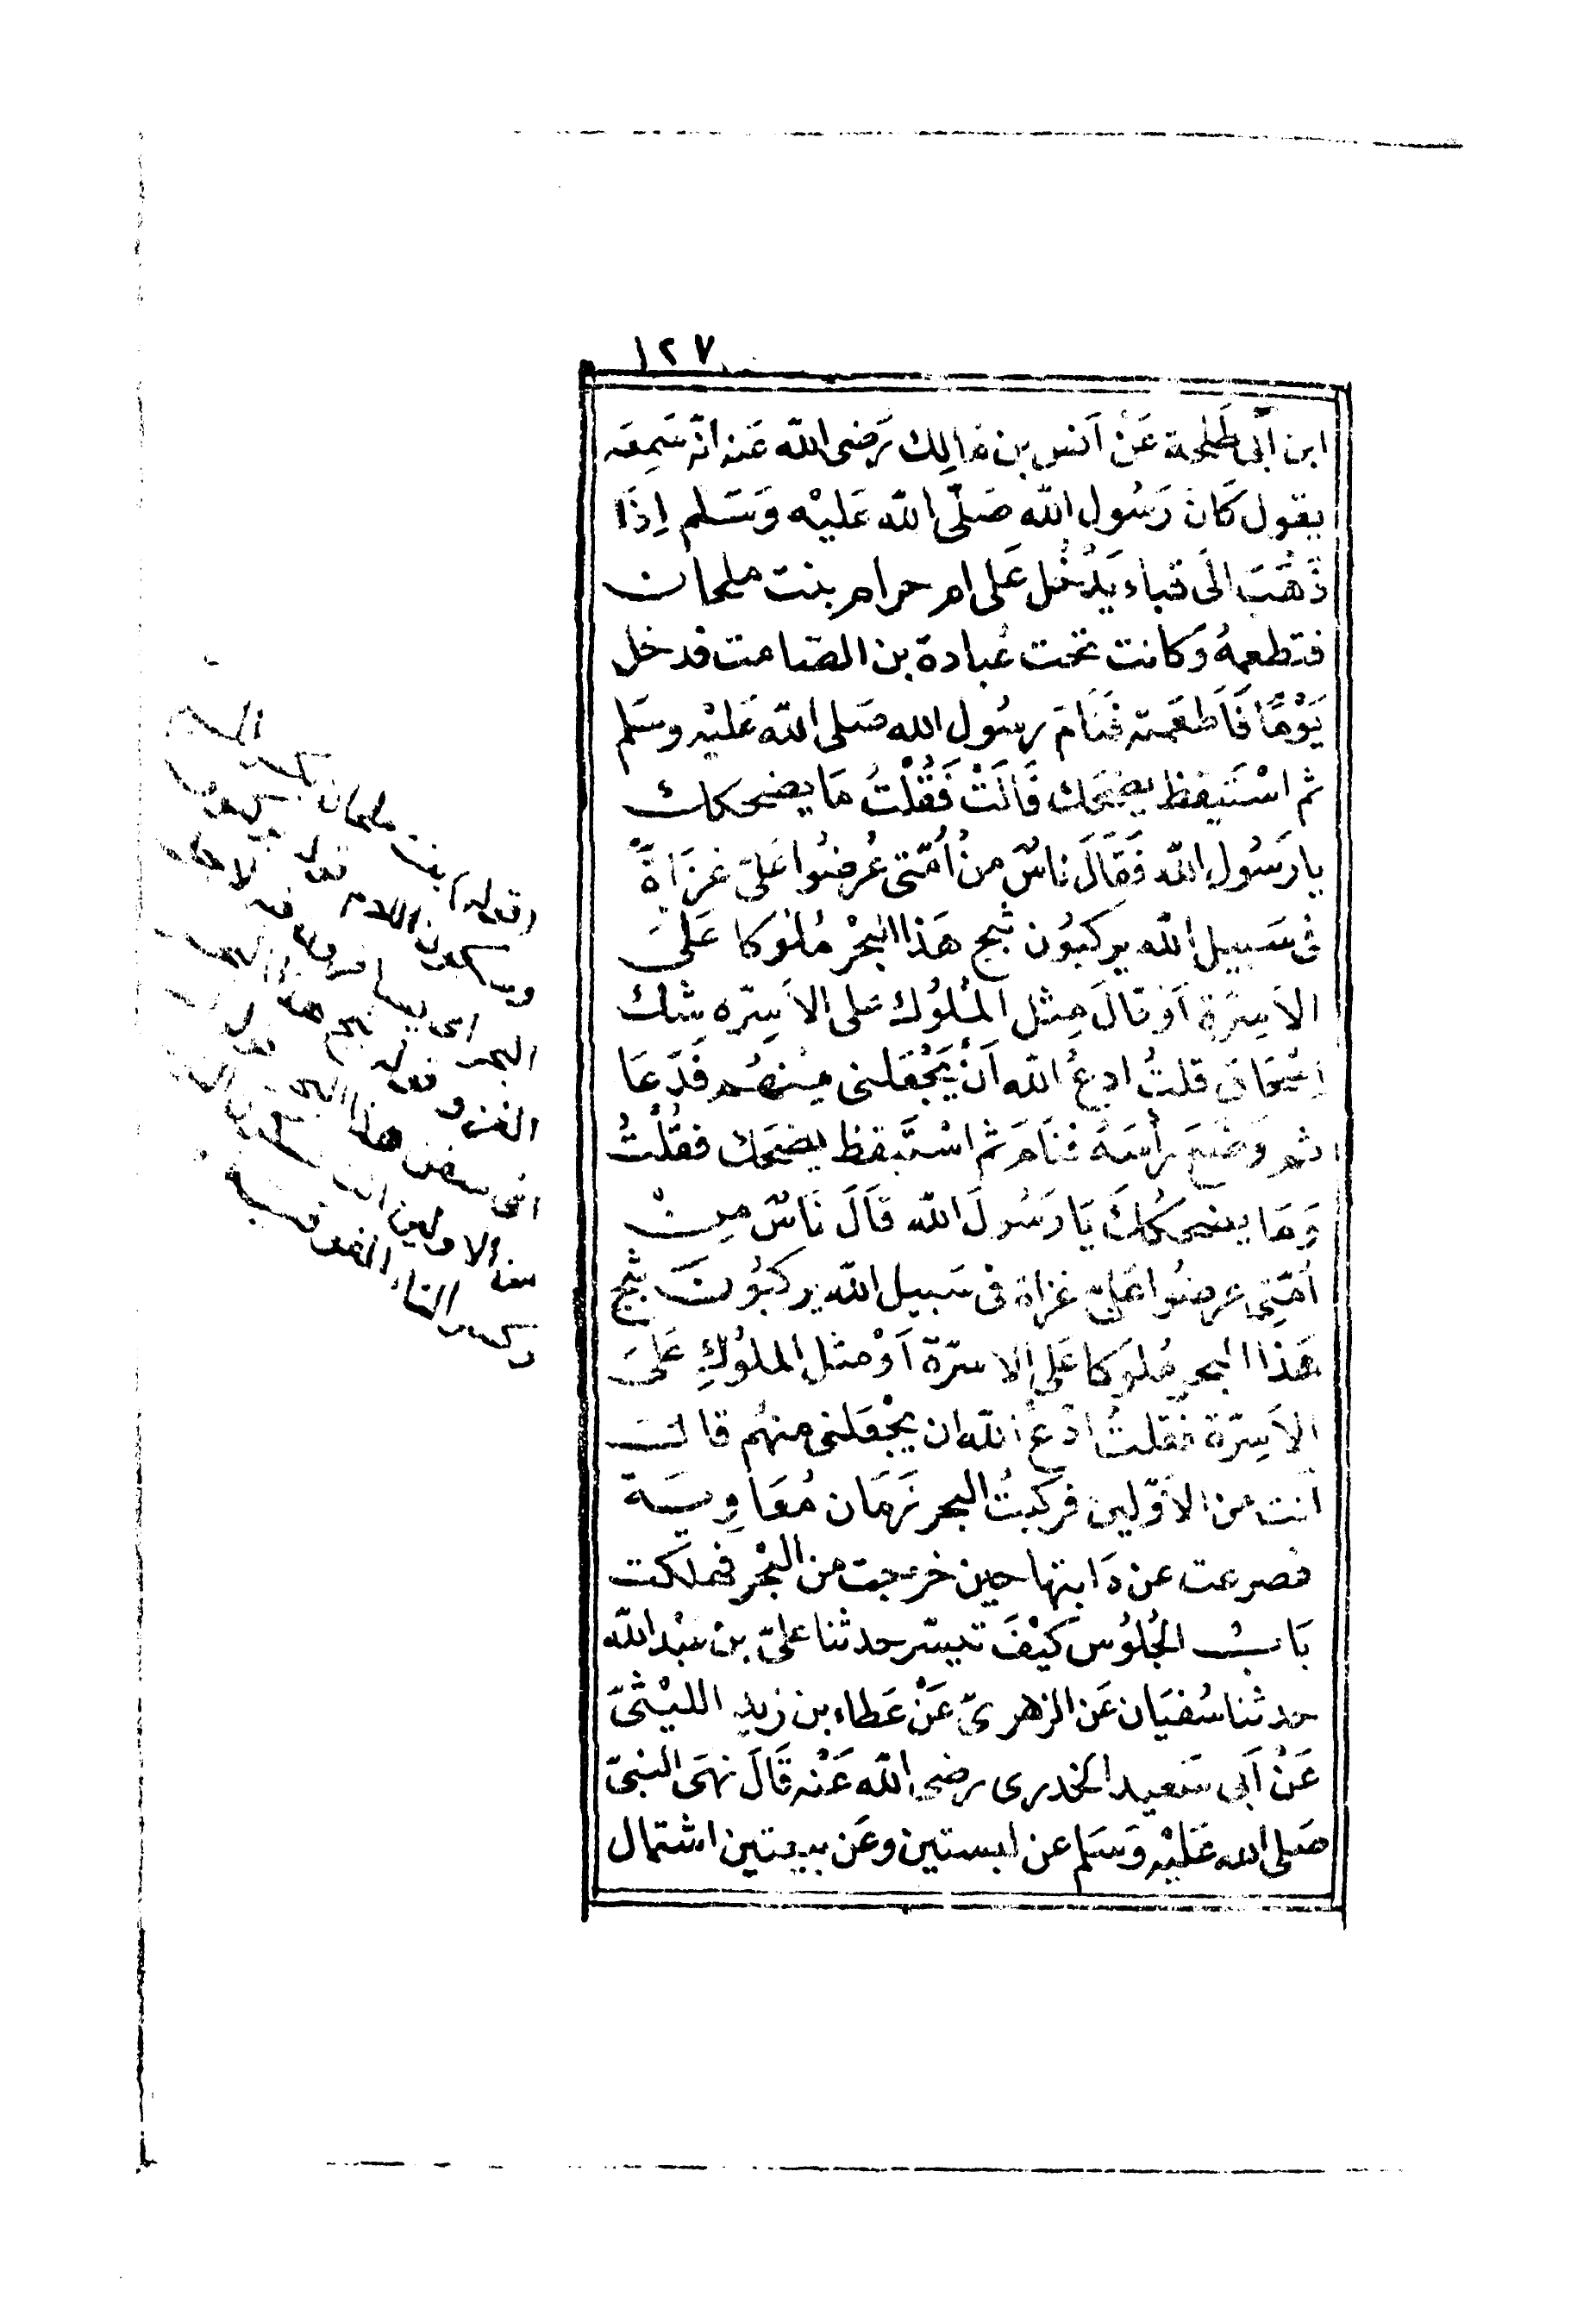 ١٢٧
ابن أبى طَلحة عَنْ اَنس بن مَالِك رَضى الله عَنه انّه سَمِعَه
يقول كَانَ رَسُول الله صَلّى الله عَليْه وَسَلم اِذَا
ذَهَبَ الَى قباء يَدْخُل عَلى ام حرام بنت ملحان
فتطعمهُ وَكانت تحت عُبادة بن الصّامت فدخل
يَوْمًا فَاَطعَمته فَنَامَ رسُول الله صَلى الله عَليْه وسَلم
ثم اسْتَيقظ يضحَك قَالَتْ فَقُلْتُ مَا يضحكك
يا رَسُول الله فَقَالَ ناسٌ من اُمّتى عُرضُوا عَلىّ غزَاةً
فى سَبيل الله يركبُون ثبج هَذا البَحْر مُلوكا عَلىَ
الاَسِرَّة اَوْ قالَ مِثل المُلُوك عَلى الاَسِرّه شك
اِسْحَاق قلتُ ادعُ الله اَنْ يَجْعَلنى مِنهُم فَدَعَا
ثم وَضَعَ رأسَهُ فنَامَ ثم اسْتَيقظ يضحَك فقُلْتُ
وَمَا يضحكُكَ يَا رَسُولَ الله قَالَ نَاسٌ مِنْ
اُمّتِى عرضُوا عَلىّ غزاة فى سَبيل الله يركبُونَ ثبج
هَذا البحر مُلوكا عَلى الاسرّة اَوْ مثل الملُوكِ عَلىَ
الاَسِرّة فقلتُ ادْعُ الله ان يجْعَلنى منهُم قالَ
اَنت من الاَوّلين فركبتُ البحر زَمَان مُعَاوِيَة
فصرعت عن دَابتها حين خرجت من البَحْر فهلكت
بَابُ الجُلوُس كَيْفَ تيسّر حدثنا علىّ بن عَبْد الله
حدثنا سُفيَان عَن الزهرىّ عَنْ عَطاء بن زيد الليْثىّ
عَنْ اَبى سَعيد الخدرى رضى الله عَنْه قَالَ نهَى النبىّ
صَلى الله عَليْه وَسَلم عن لبستين وعَن بيعتين اشتمال
(قوله) بنت ملحان بكسر الميم
وسكون اللام قوله
البحر
الغزو قوله ثبج هذا البحر
من الاولين